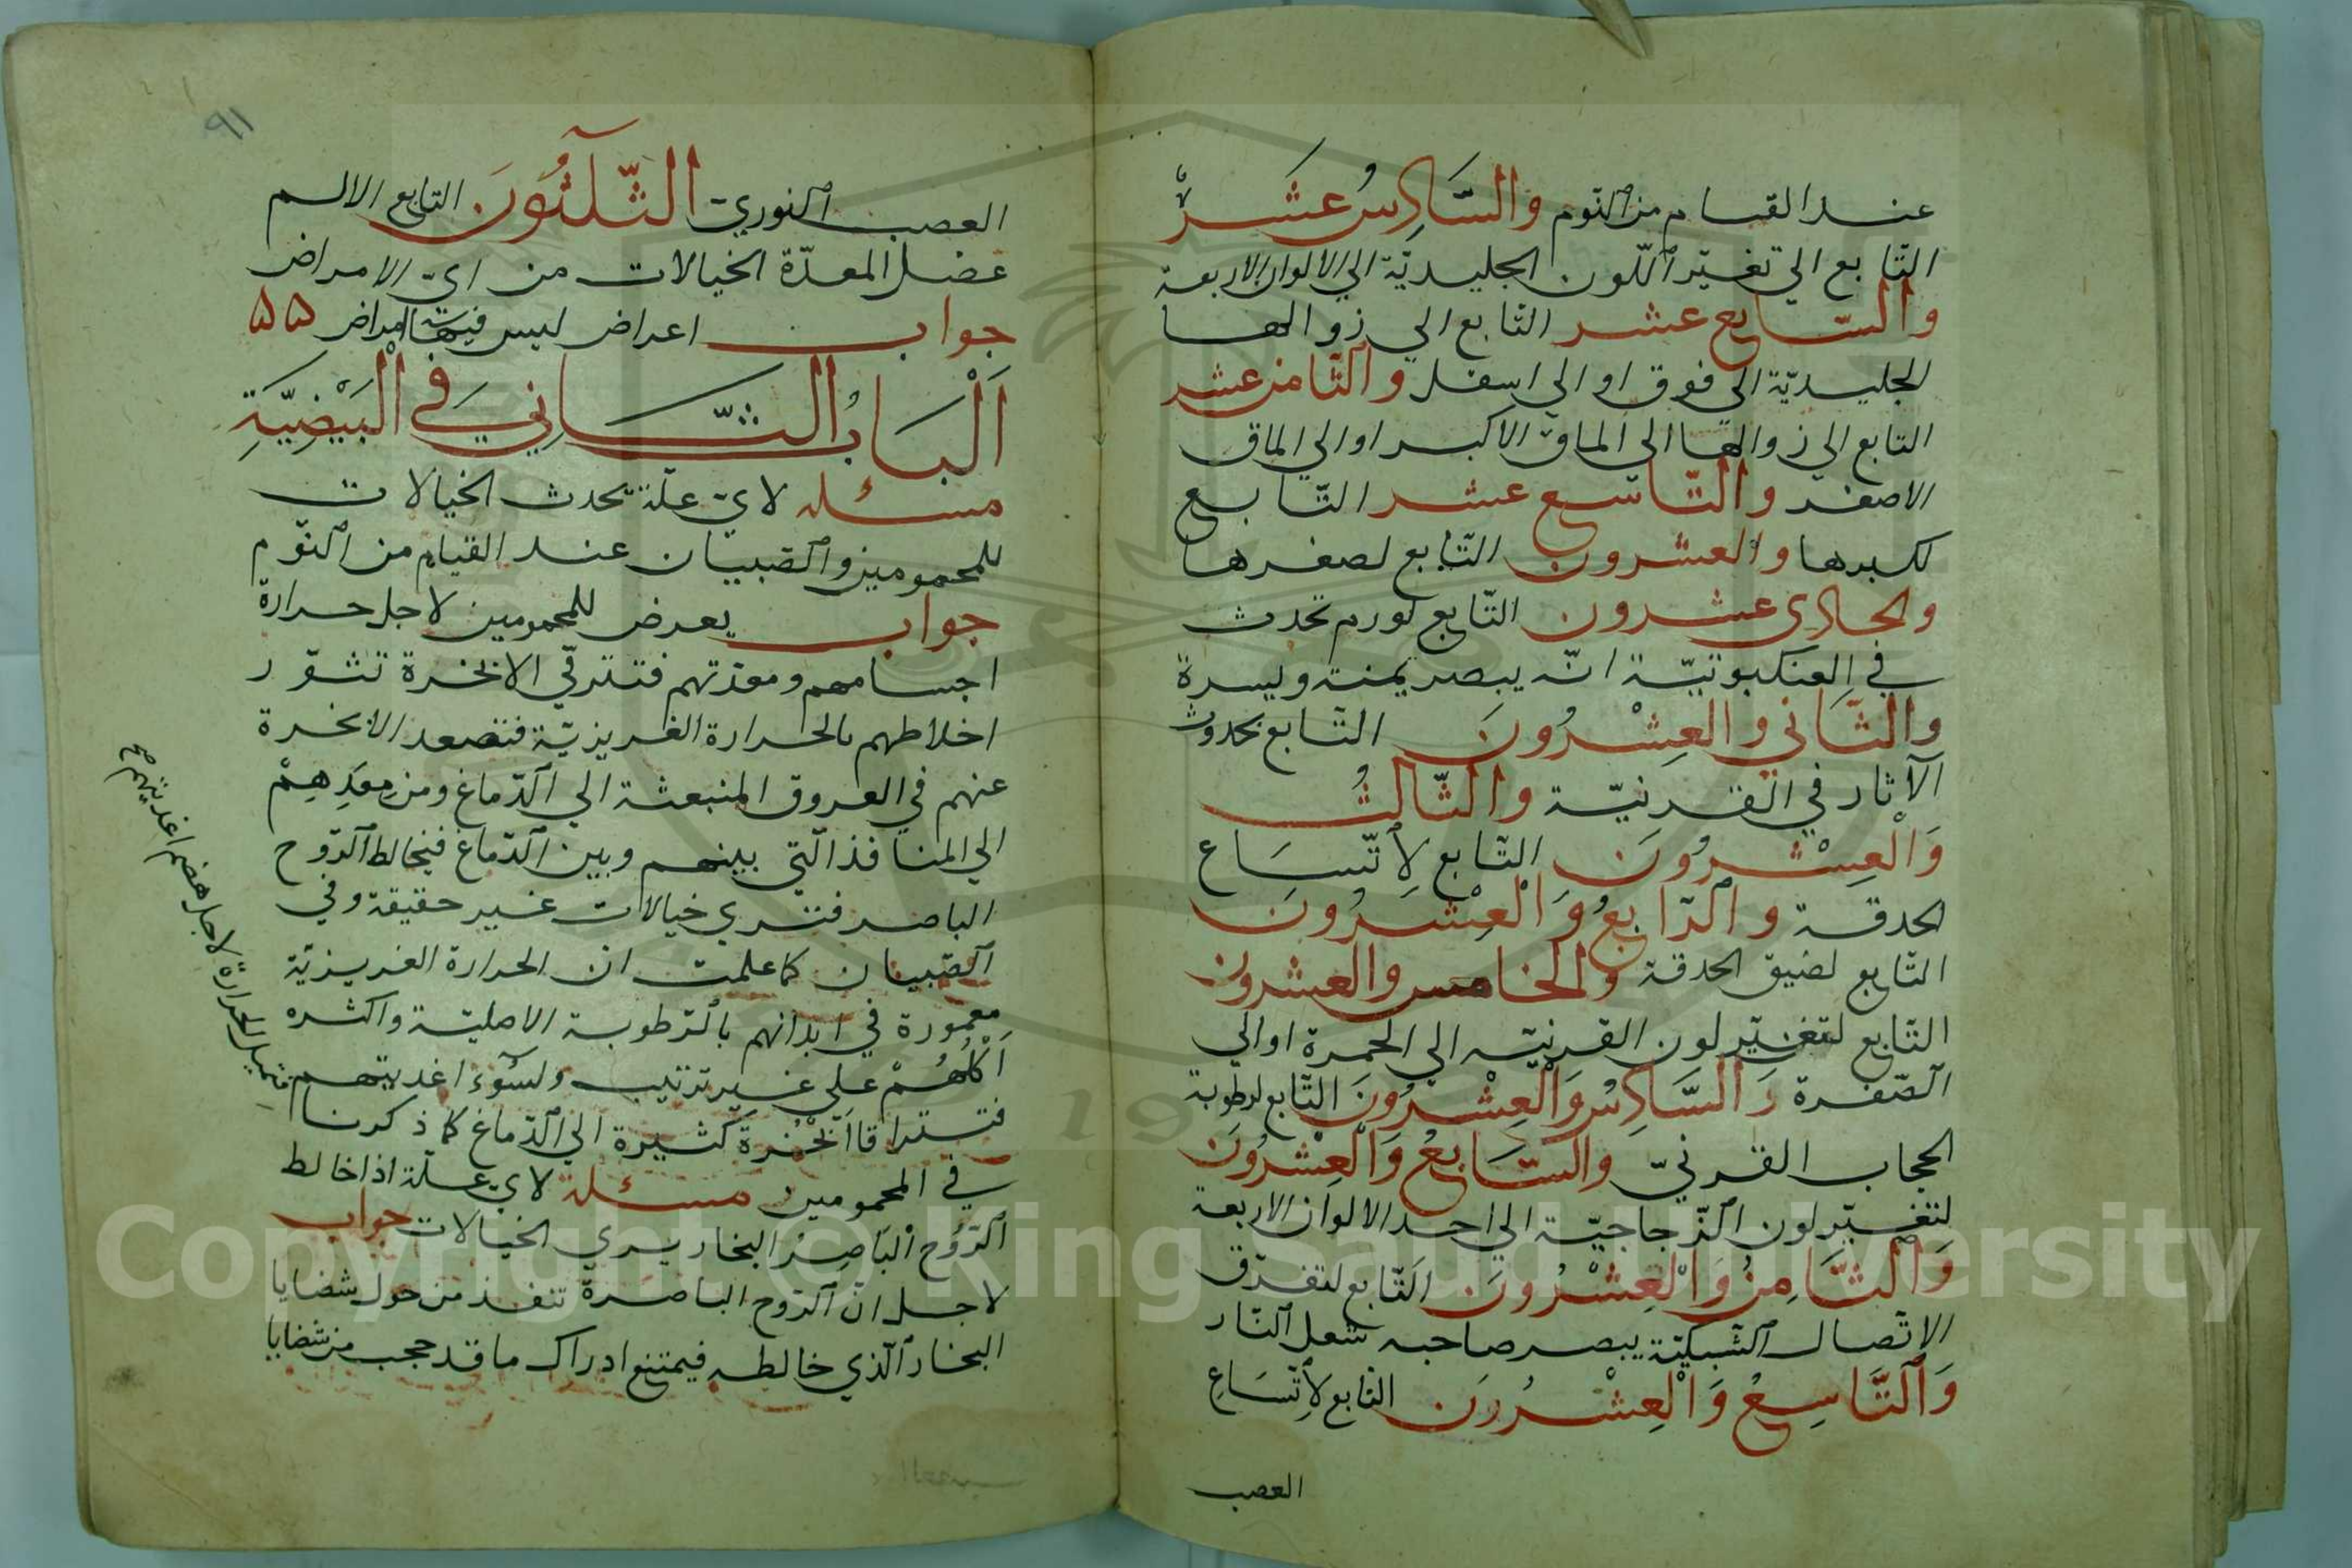 عند القيام من النوم والسَّادِسُ عَشَرْ
التّابع الي تغيّر اللّون الجليديّة الي الالوان الاربعة
والسّابع عشر التّابع الي زوالها
الجليديّة الي فوق او الي اسفل والثّامن عشر
التابع الي زوالها الي الماق الاكبر او الي الماق
الاصغر والتّاسع عشر التّابع
لكبرها والعشرون التّابع لصغرها
والحادي عشرون التّابع لورم تحدث
في العنكبوتيّة انّه يبصر يمنة ويسرة
والثّاني والعِشْرُونَ التّابع بحدوث
الآثار في القرنيّة والثّالثُ
وَالْعِشْرُونَ التّابع لِاتّسَاع
الحدقة والرّابعُ وَالْعِشْرُونَ
التّابع لضيق الحدقة والخامس والعشرون
التّابع لتغيّر لون القرنيّه الي الحمرة او الي
الصّفرة وَالسَّادِسُ وَالْعِشْرُونَ التّابع لرطوبة
الحجاب القرنيّ والسّابعُ وَالْعِشْرُونَ
لتغيّر لون الزّجاجيّة الي احد الالوان الاربعة
وَالثَّامِنُ وَالْعِشْرُونَ التّابع لتفرّق
الاتّصال الشّبكيّة يبصر صاحبه شعل النّار
وَالتَّاسِعُ وَالْعِشْرُونَ التّابع لِاتّسَاعِ
العصب
٩١
العصب النوريّ الثّلثُونَ التابع الالم
عضل المعدّة الخيالات من ايّ الامراض
جواب اعراض ليس فيها امراض ۵۵
اَلْبَابُ الثّاني في الْبَيْضِيَّةِ
مسئله لايّ علّة تحدث الخيالات
للمحمومين والصّبيان عند القيام من النّوم
جواب يعرض للمحمومين لاجل حرارة
اجسامهم ومعدتهم فتترقّي الابخرة تثوّر
اخلاطهم بالحرارة الغريزيّة فتصعد الابخرة
عنهم في العروق المنبعثة الي الدّماغ ومن مِعَدِهِمْ
الي المنافذ الّتي بينهم وبين الدّماغ فيخالط الرّوح
الباصر فتري خيالات غير حقيقة وفي
الصّبيان كما علمت ان الحرارة الغريزيّة
مغمورة في ابدانهم بالرّطوبة الاصليّة واكثره
اَكْلُهُمْ علي غير ترتيب ولسُوء اغديتهم
فتتراقا اَبْخُرة كثيرة الي الدّماغ كما ذكرنا
في المحمومين مسئلة لايّ علّة اذا خالط
الرّوُح الْبَاصِرُ البخار يري الخيالات جواب
لاجل انّ الرّوح الباصرة تنفذ من حول شضايا
البخار الّذي خالطه فيمتنع ادراك ما قد حجب من شضايا
الحرارة لاجل هضم اغديتهم صح